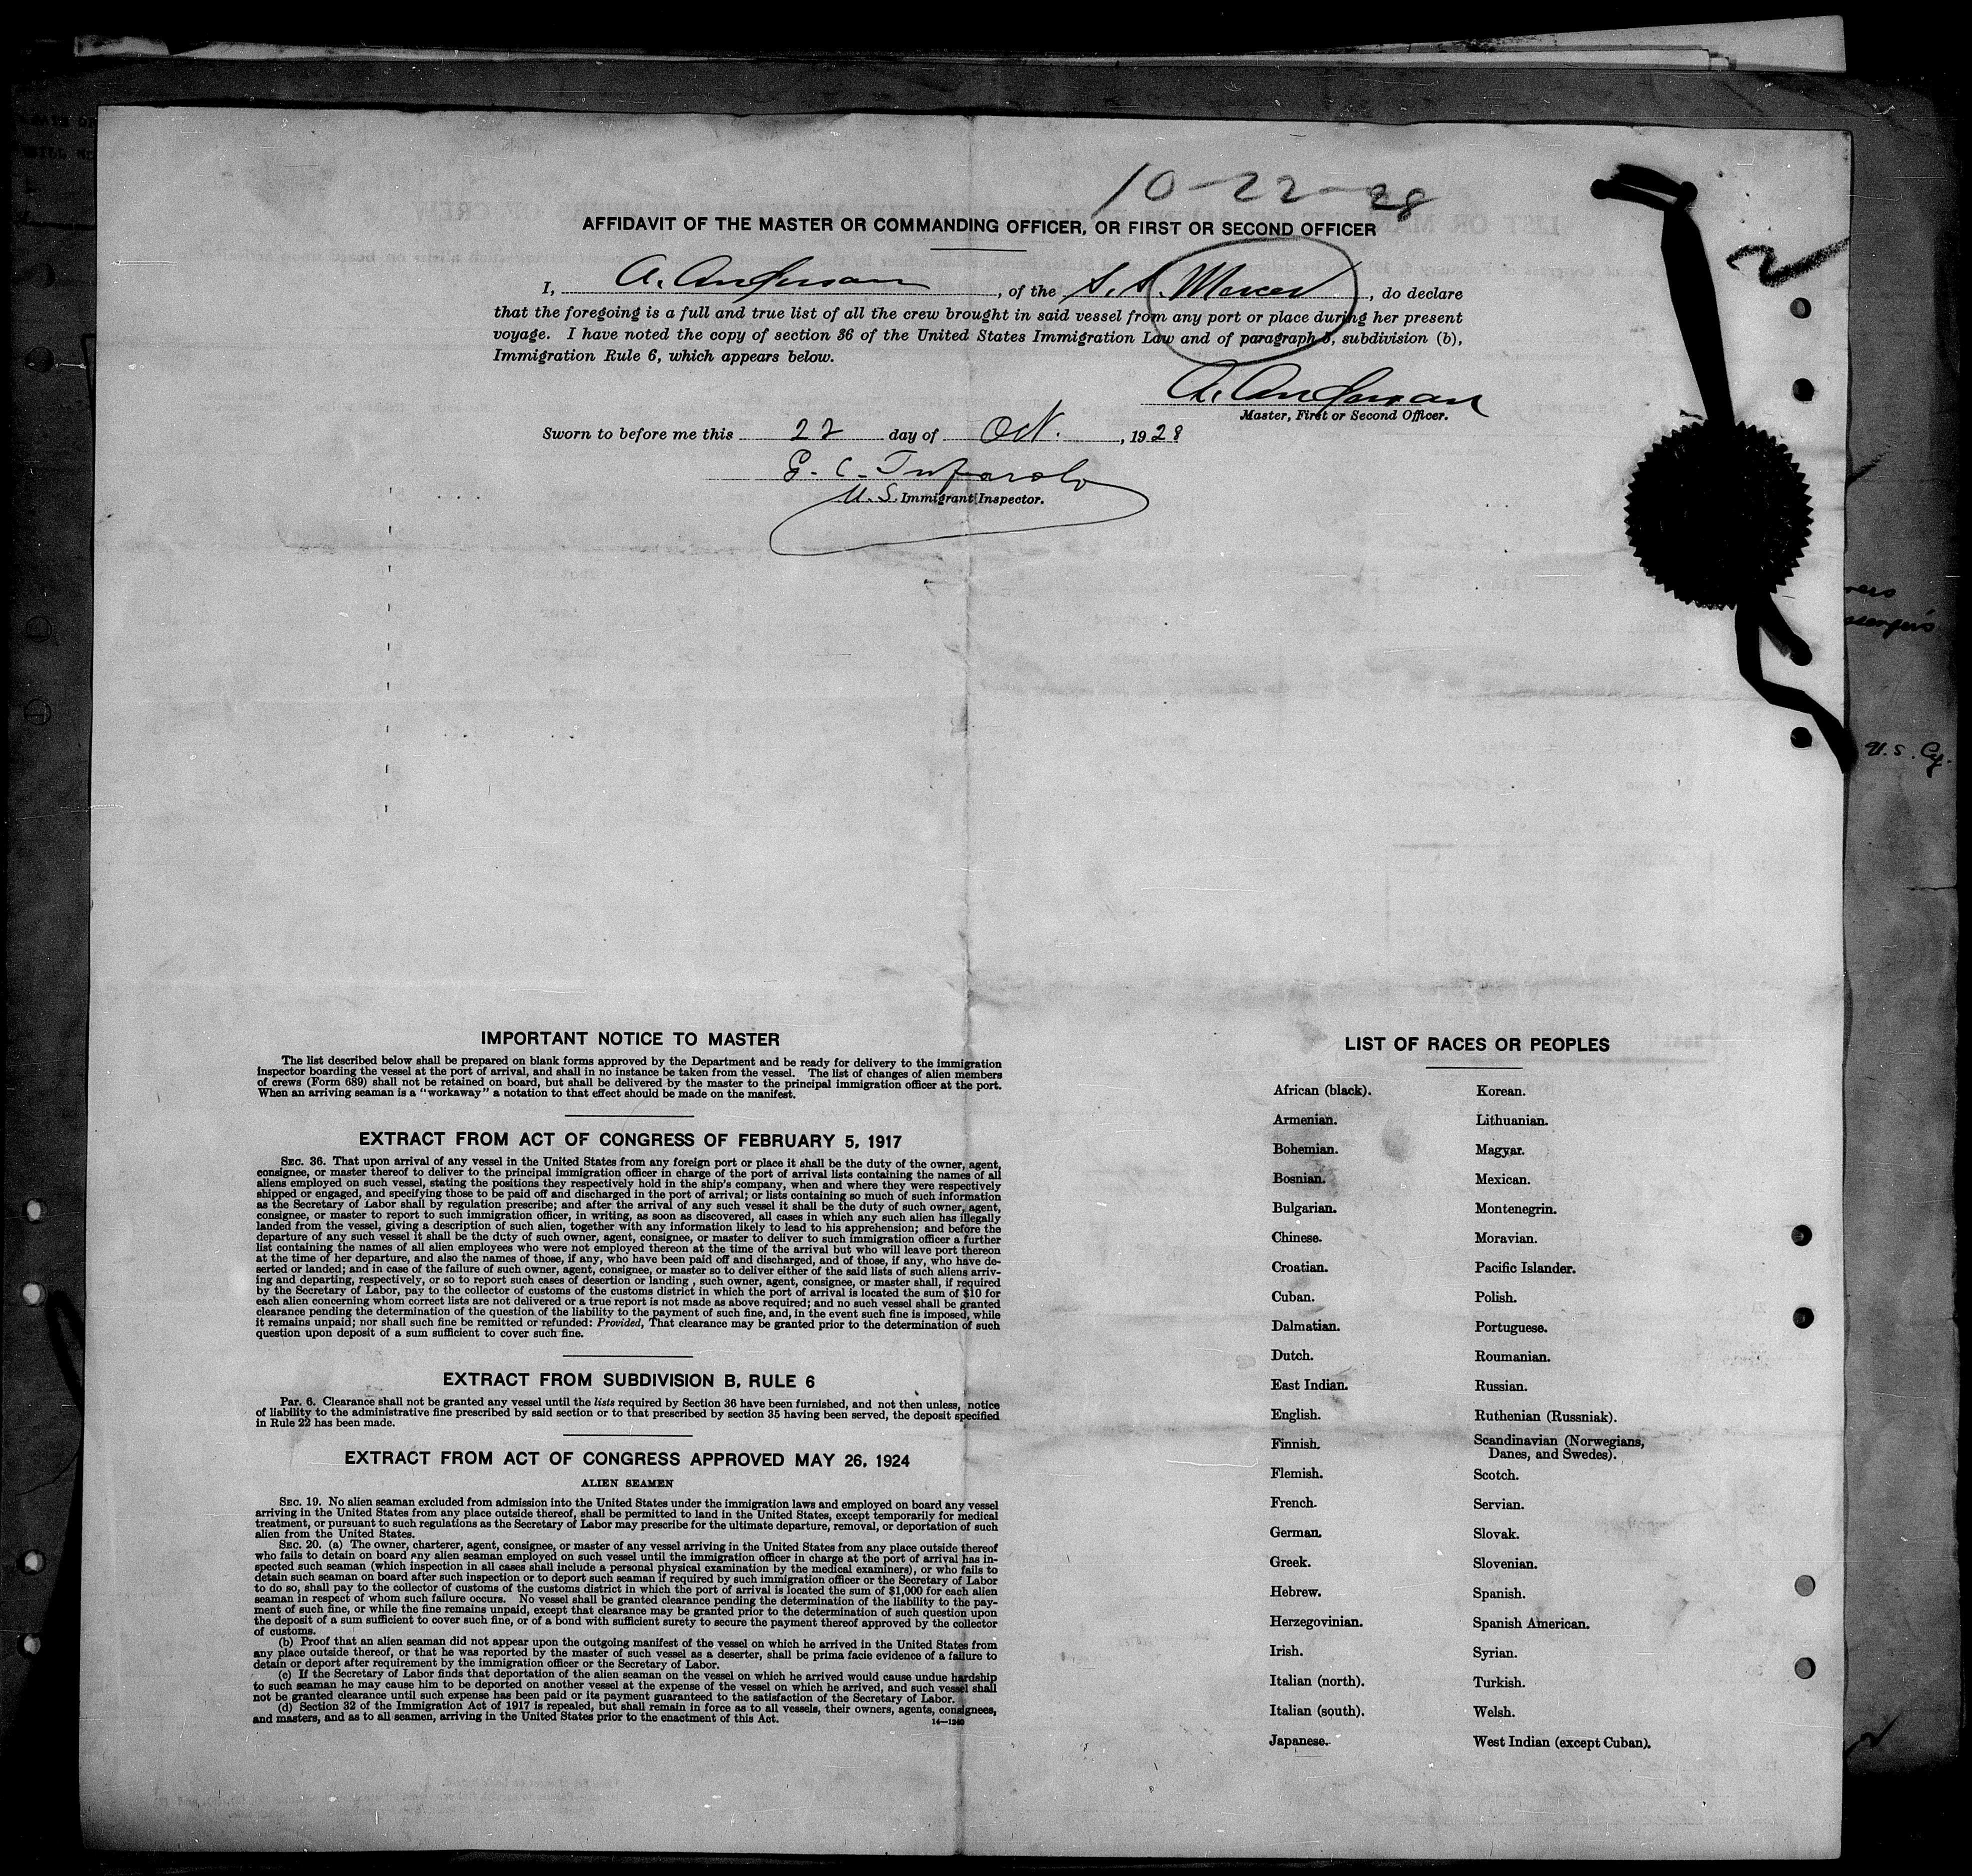 10-22-28
2
AFFIDAVIT OF THE MASTER OR COMMANDING OFFICER, OR FIRST OR SECOND OFFICER
I, A. Anderson, of the S. S. Mercer, do declare
that the foregoing is a full and true list of all the crew brought in said vessel from any port or place during her present
voyage. I have noted the copy of section 36 of the United States Immigration Law and of paragraph 5, subdivision (b),
Immigration Rule 6, which appears below.
A. Anderson
Master, First or Second Officer.
Sworn to before me this 22 day of Oct., 1928
E. C.
U. S. Immigrant Inspector.
U.S. Cy.
IMPORTANT NOTICE TO MASTER
The list described below shall be prepared on blank forms approved by the Department and be ready for delivery to the immigration
inspector boarding the vessel at the port of arrival, and shall in no instance be taken from the vessel. The list of changes of alien members
of crews (Form 689) shall not be retained on board, but shall be delivered by the master to the principal immigration officer at the port.
When an arriving seaman is a "workaway" a notation to that effect should be made on the manifest.
EXTRACT FROM ACT OF CONGRESS OF FEBRUARY 5, 1917
SEC. 36. That upon arrival of any vessel in the United States from any foreign port or place it shall be the duty of the owner, agent,
consignee, or master thereof to deliver to the principal immigration officer in charge of the port of arrival lists containing the names of all
aliens employed on such vessel, stating the positions they respectively hold in the ship's company, when and where they were respectively
shipped or engaged, and specifying those to be paid off and discharged in the port of arrival; or lists containing so much of such information
as the Secretary of Labor shall by regulation prescribe; and after the arrival of any such vessel it shall be the duty of such owner, agent,
consignee, or master to report to such immigration officer, in writing, as soon as discovered, all cases in which any such alien has illegally
landed from the vessel, giving a description of such alien, together with any information likely to lead to his apprehension; and before the
departure of any such vessel it shall be the duty of such owner, agent, consignee, or master to deliver to such immigration officer a further
list containing the names of all alien employees who were not employed thereon at the time of the arrival but who will leave port thereon
at the time of her departure, and also the names of those, if any, who have been paid off and discharged, and of those, if any, who have de-
serted or landed; and in case of the failure of such owner, agent, consignee, or master so to deliver either of the said lists of such aliens arriv-
ing and departing, respectively, or so to report such cases of desertion or landing , such owner, agent, consignee, or master shall, if required
by the Secretary of Labor, pay to the collector of customs of the customs district in which the port of arrival is located the sum of $10 for
each alien concerning whom correct lists are not delivered or a true report is not made as above required; and no such vessel shall be granted
clearance pending the determination of the question of the liability to the payment of such fine, and, in the event such fine is imposed, while
it remains unpaid; nor shall such fine be remitted or refunded: Provided, That clearance may be granted prior to the determination of such
question upon deposit of a sum sufficient to cover such fine.
EXTRACT FROM SUBDIVISION B, RULE 6
Par. 6. Clearance shall not be granted any vessel until the lists required by Section 36 have been furnished, and not then unless, notice
of liability to the administrative fine prescribed by said section or to that prescribed by section 35 having been served, the deposit specified
in Rule 22 has been made.
EXTRACT FROM ACT OF CONGRESS APPROVED MAY 26, 1924
ALIEN SEAMEN
SEC. 19. No alien seaman excluded from admission into the United States under the immigration laws and employed on board any vessel
arriving in the United States from any place outside thereof, shall be permitted to land in the United States, except temporarily for medical
treatment, or pursuant to such regulations as the Secretary of Labor may prescribe for the ultimate departure, removal, or deportation of such
alien from the United States.
SEC. 20. (a) The owner, charterer, agent, consignee, or master of any vessel arriving in the United States from any place outside thereof
who fails to detain on board any alien seaman employed on such vessel until the immigration officer in charge at the port of arrival has in-
spected such seaman (which inspection in all cases shall include a personal physical examination by the medical examiners), or who fails to
detain such seaman on board after such inspection or to deport such seaman if required by such immigration officer or the Secretary of Labor
to do so, shall pay to the collector of customs of the customs district in which the port of arrival is located the sum of $1,000 for each alien
seaman in respect of whom such failure occurs. No vessel shall be granted clearance pending the determination of the liability to the pay-
ment of such fine, or while the fine remains unpaid, except that clearance may be granted prior to the determination of such question upon
the deposit of a sum sufficient to cover such fine, or of a bond with sufficient surety to secure the payment thereof approved by the collector
of customs.
(b) Proof that an alien seaman did not appear upon the outgoing manifest of the vessel on which he arrived in the United States from
any place outside thereof, or that he was reported by the master of such vessel as a deserter, shall be prima facie evidence of a failure to
detain or deport after requirement by the immigration officer or the Secretary of Labor.
(c) If the Secretary of Labor finds that deportation of the alien seaman on the vessel on which he arrived would cause undue hardship
to such seaman he may cause him to be deported on another vessel at the expense of the vessel on which he arrived, and such vessel shall
not be granted clearance until such expense has been paid or its payment guaranteed to the satisfaction of the Secretary of Labor.
(d) Section 32 of the Immigration Act of 1917 is repealed, but shall remain in force as to all vessels, their owners, agents, consignees,
and masters, and as to all seamen, arriving in the United States prior to the enactment of this Act.
14—1240
LIST OF RACES OR PEOPLES
African (black).
Armenian.
Bohemian.
Bosnian.
Bulgarian.
Chinese.
Croatian.
Cuban.
Dalmatian.
Dutch.
East Indian.
English.
Finnish.
Flemish.
French.
German.
Greek.
Hebrew.
Herzegovinian.
Irish.
Italian (north).
Italian (south).
Japanese.
Korean.
Lithuanian.
Magyar.
Mexican.
Montenegrin.
Moravian.
Pacific Islander.
Polish.
Portuguese.
Roumanian.
Russian.
Ruthenian (Russniak).
Scandinavian (Norwegians,
Danes, and Swedes).
Scotch.
Servian.
Slovak.
Slovenian.
Spanish.
Spanish American.
Syrian.
Turkish.
Welsh.
West Indian (except Cuban).